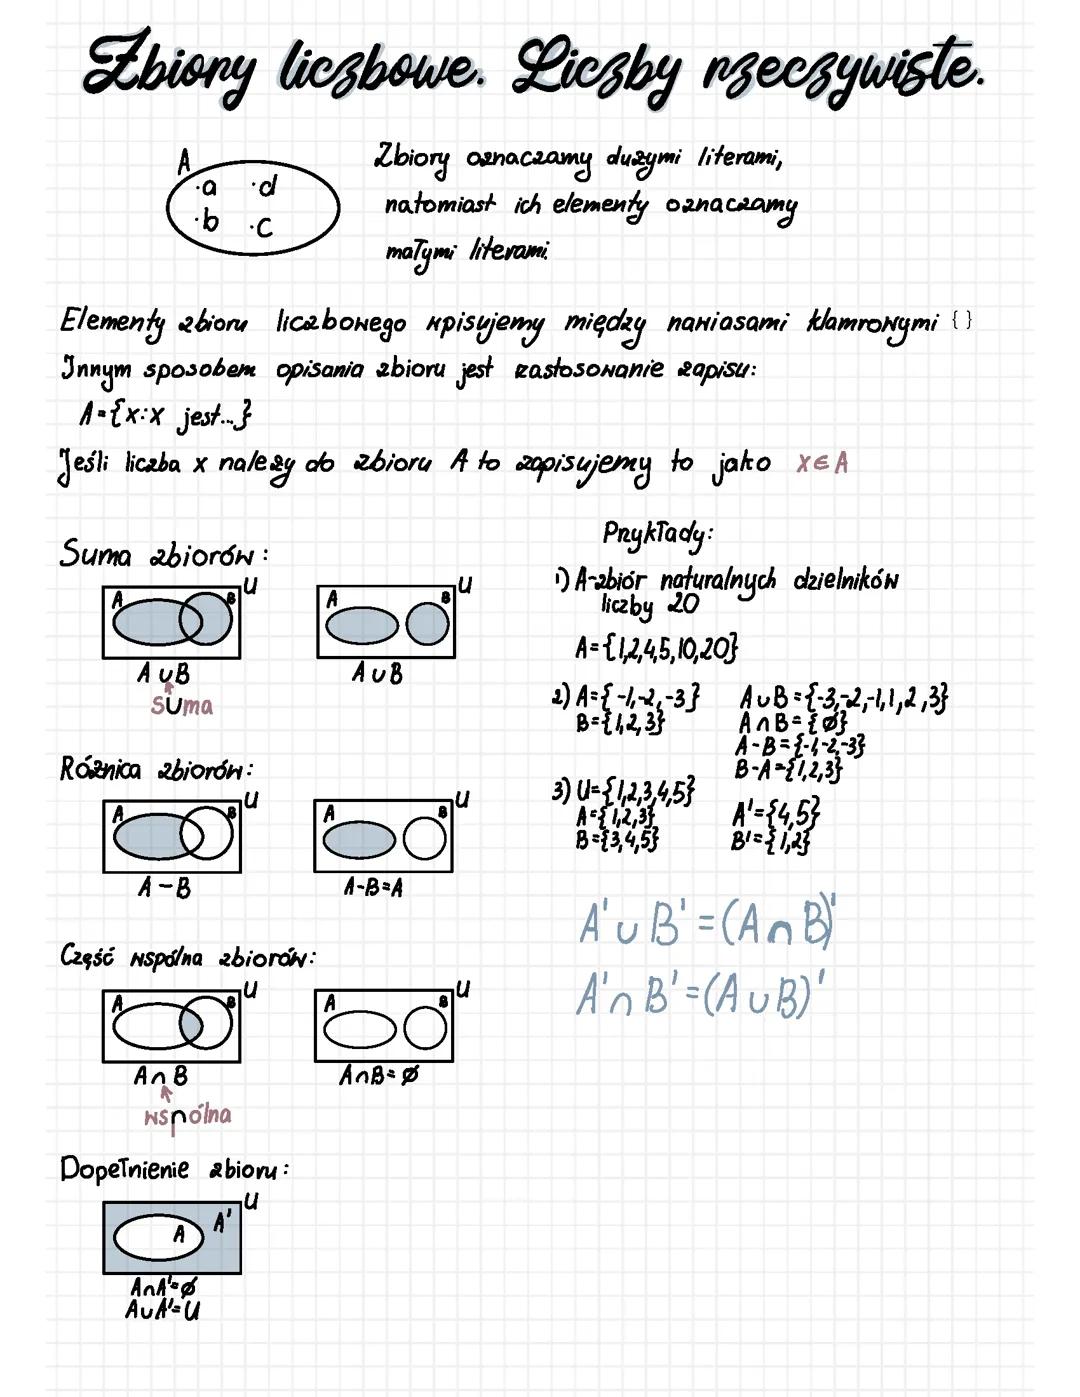 Zbiory liczbowe. Liczby rzeczywiste.
A
·a ·d
·b ·c
Zbiory oznaczamy dużymi literami,
natomiast ich elementy oznaczamy
małymi literami.
Elementy zbioru liczbowego wpisujemy między nawiasami klamrowymi { }
Innym sposobem opisania zbioru jest zastosowanie zapisu:
A={x:x jest...}
Jeśli liczba x należy do zbioru A to zapisujemy to jako x∈A
Suma zbiorów:
A B U
A∪B
suma
A B U
A∪B
Różnica zbiorów:
A B U
A-B
A B U
A-B=A
Część wspólna zbiorów:
A B U
A∩B
wspólna
A B U
A∩B=ø
Dopełnienie zbioru:
A A' U
A∩A'=ø
A∪A'=U
Przykłady:
1) A-zbiór naturalnych dzielników
liczby 20
A={1,2,4,5,10,20}
2) A={-1,-2,-3}
B={1,2,3}
A∪B={-3,-2,-1,1,2,3}
A∩B={ø}
A-B={-1,-2,-3}
B-A={1,2,3}
3) U={1,2,3,4,5}
A={1,2,3}
B={3,4,5}
A'={4,5}
B'={1,2}
A'∪B'=(A∩B)'
A'∩B'=(A∪B)'